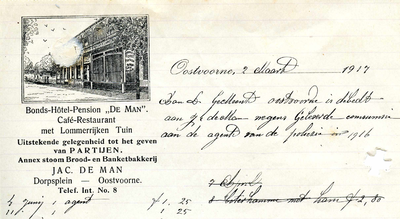 Bonds-Hôtel-Pension „DE MAN".
Café-Restaurant
met Lommerrijken Tuin
Uitstekende gelegenheid tot het geven
van PARTIJEN.
Annex stoom Brood- en Banketbakkerij
JAC. DE MAN
Dorpsplein — Oostvoorne.
Telef. Int. No. 8
Oostvoorne, 2 Maart 1917
Oostvoorne is debet
aan J. de Man wegens Geleverde consumsie
aan de agent van de polisie in 1916
5 Junij 1 agent ƒ 1. 25
11 " 1 " 1 25
met ham ƒ 2,80